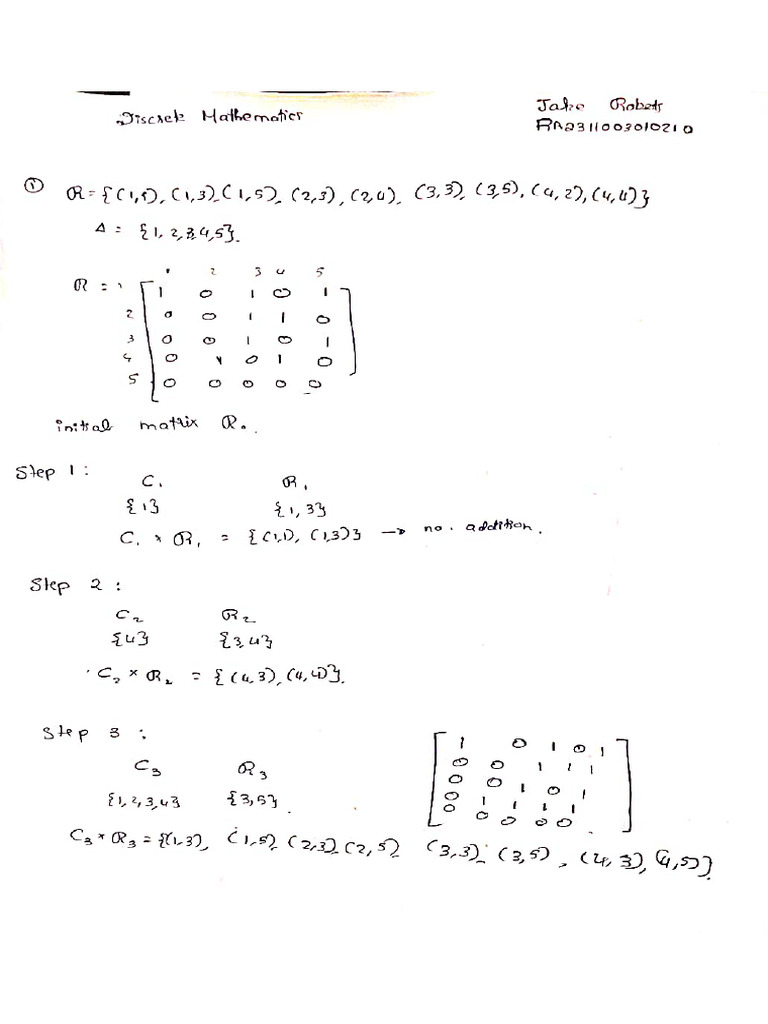 Discrete Mathematics
Jake Roberts
RA2311003010210
① R = {(1,1), (1,3), (1,5), (2,3), (2,4), (3,3), (3,5), (4,2), (4,4)}
A = {1, 2, 3, 4, 5}.
1 2 3 4 5
R = 1 [ 1 0 1 0 1 ]
2 0 0 1 1 0
3 0 0 1 0 1
4 0 1 0 1 0
5 0 0 0 0 0
initial matrix R.
Step 1:
C₁ R₁
{1} {1, 3}
C₁ × R₁ = {(1,1), (1,3)} → no. addition.
Step 2:
C₂ R₂
{4} {3,4}
C₂ × R₂ = {(4,3), (4,4)}.
Step 3:
C₃ R₃
{1,2,3,4} {3,5}.
1 0 1 0 1
0 0 1 1 1
0 0 1 0 1
0 1 1 1 1
0 0 0 0 0
C₃ × R₃ = {(1,3), (1,5), (2,3), (2,5), (3,3), (3,5), (4,3), (4,5)}.